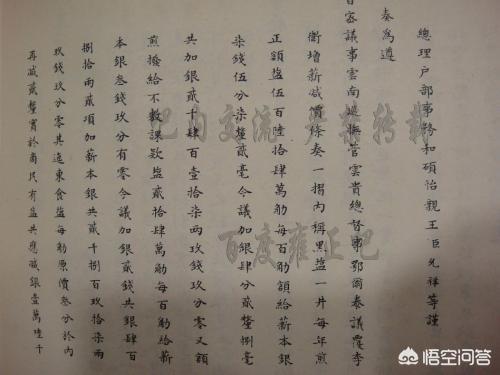 總理户部事務和碩怡親王臣允祥等謹
奏為遵
旨審議事雲南巡撫管雲貴總督事鄂爾泰議覆李
衛增薪減價條奏一摺内稱黑盐一片每年煎
正額盐伍百陸拾肆萬觔每百觔額給薪本銀
柒錢伍分柒釐貳毫今議加銀肆分貳釐捌毫
共加銀貳千肆百壹拾柒兩玖錢玖分零又額
煎撥給不敷課欵盐貳拾肆萬觔每百觔給薪
本銀叁錢玖分有零今議加銀貳錢共銀肆百
捌拾兩貳項加薪本銀共貳千捌百玖拾柒兩
玖錢玖分零其迤東食盐每觔原價叁分於内
再减貳釐實於商民有益共應减銀壹萬陸千
吧内交流 严禁转载
百度雍正吧
悟空问答